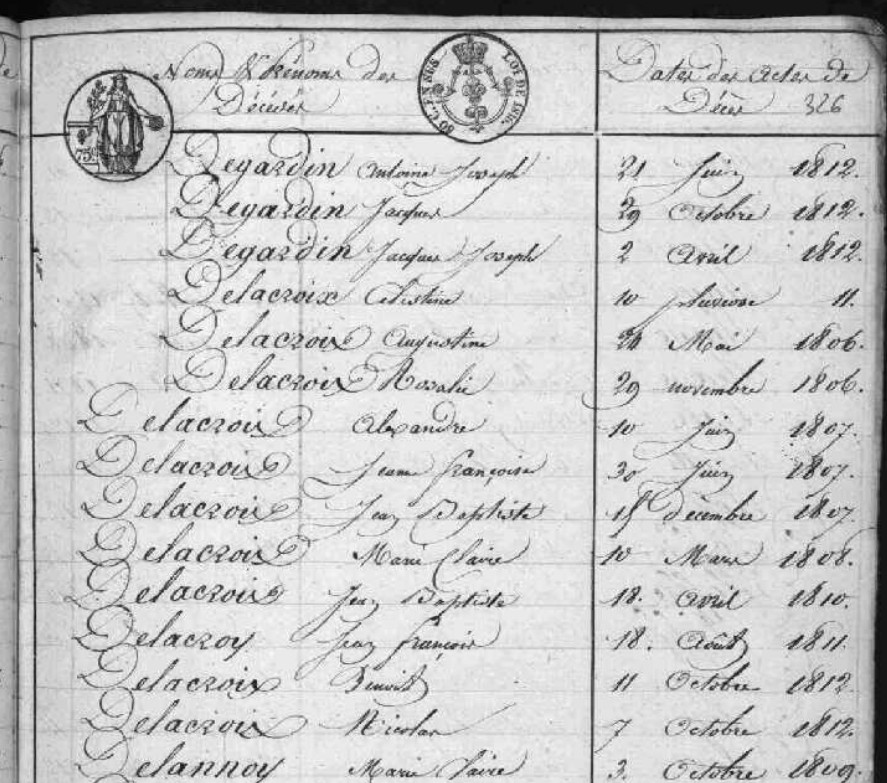 Noms & Prénoms des
Décédés
Dates des Actes de
Décès 326
75c
50 CEN. SUS LOI DE 1816.
Degardin Antoine Joseph 21 Juin 1812.
Degardin Jacques 29 Octobre 1812.
Degardin Jacques Joseph 2 Avril 1812.
Delacroix Celestine 10 pluviose 11.
Delacroix Augustine 24 Mai 1806.
Delacroix Rosalie 29 novembre 1806.
Delacroix Alexandre 10 Juin 1807.
Delacroix Jeanne françoise 30 Juin 1807.
Delacroix Jean Baptiste 15 décembre 1807.
Delacroix Marie Claire 10 Mars 1808.
Delacroix Jean Baptiste 18. Avril 1810.
Delacroy Jean françois 18. Août 1811.
Delacroix Benoit 11 Octobre 1812.
Delacroix Nicolas 7 Octobre 1812.
Delannoy Marie Claire 3. Octobre 1809.